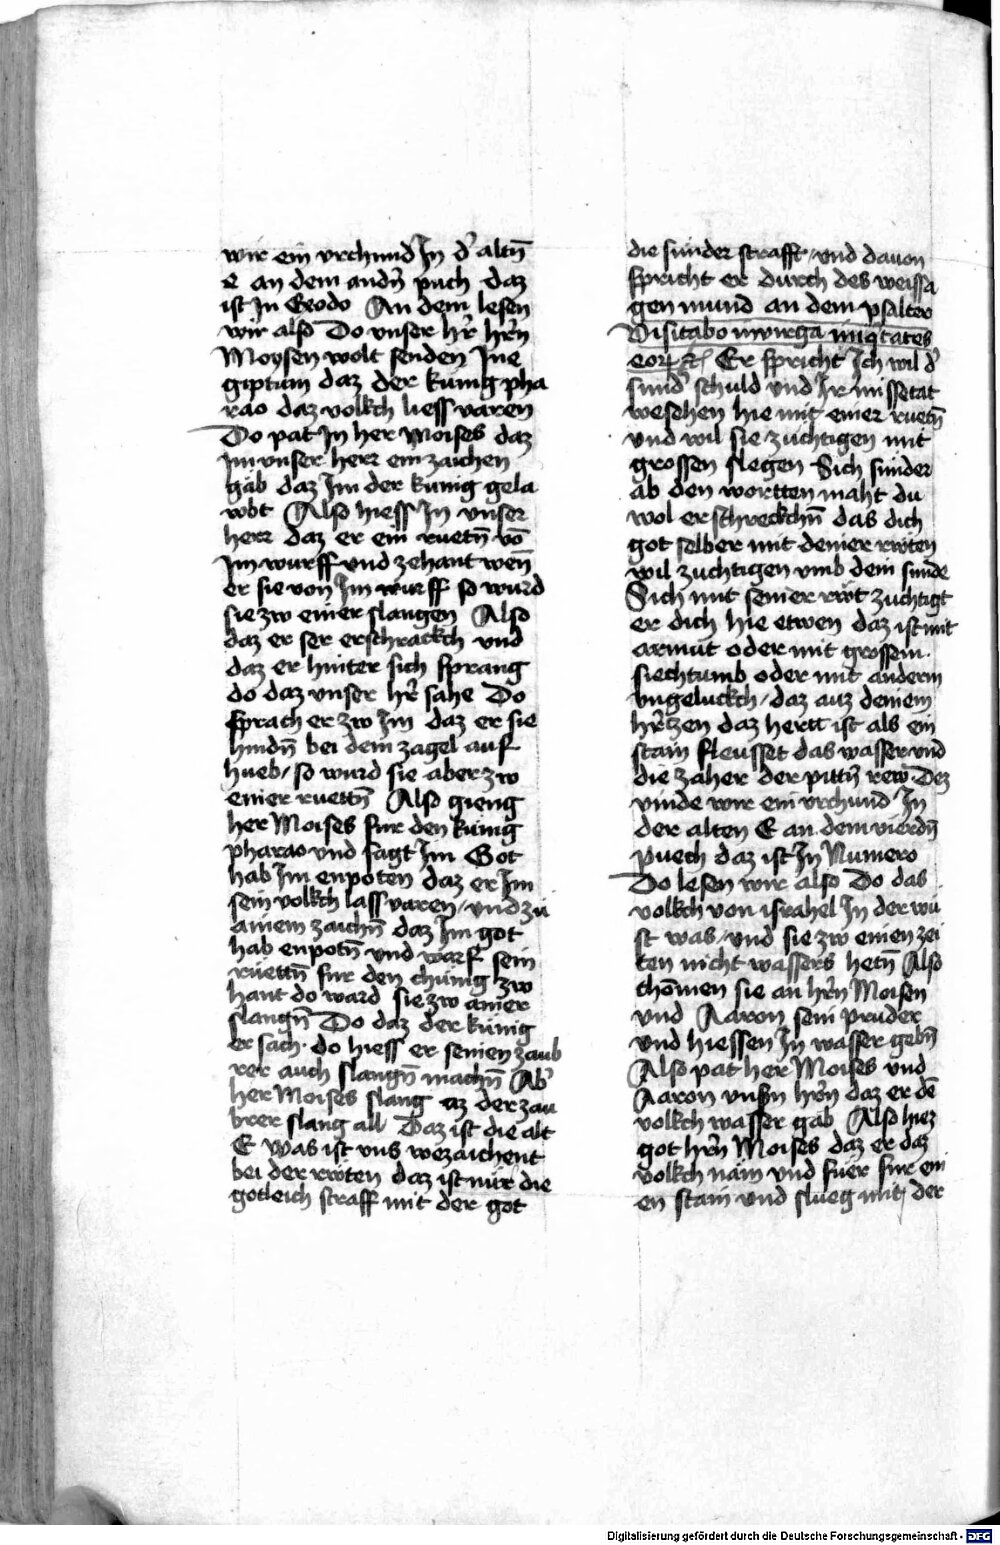 wir ein vrchund Jn d' altn̄
e an dem andn̄ puch daz
ist Jn Exodo An dem lesen
wir also Do vnser hr̄ hr̄n
Moysen wolt senden Jn e
giptum daz der kunig pha
rao daz volkch liess varen
Do pat Jn her Moises daz
Jm vnser herr ein zaichen
gäb daz Jm der kunig gela
wbt Also hiess Jn vnser
herr daz er ein ruetn̄ vō
Jm wurff vnd zehant wen̄
er sie von Jm wurff so wurd
sie zw einer slangen Also
daz er ser erschrackch vnd
daz er hinter sich sprang
do daz vnser hr̄ sahe Do
sprach er zw Jm daz er sie
hindn̄ bei dem zagel auf
hueb / so wurd sie aber zw
einer ruettn̄ Also gieng
her Moises fur den kunig
pharao vnd sagt Jm Got
hab Jm enpoten daz er Jm
sein volkch lass varen / vnd zu
ainem zaichn̄ daz Jm got
hab enpotn̄ vnd warf sein
rüettn̄ fur den chunig zw
hant do ward sie zw ainer
slangn̄ Do daz der kunig
er sach · do hiess er seinen zaub
rer auch slangn̄ machn̄ Ab'
her Moises slang az der zau
brer slang all Daz ist die alt
E was ist vns wezaichent
bei der rwten daz ist nür die
gotleich straff mit der got
die sunder strafft / vnd davon
spricht er durch des weissa
gen mund an dem psalter
Visitabo in virga iniq̄tates
eorꝝ ꝛc̄ Er spricht Ich wil d'
sund' schuld vnd Jr missetat
wesehen hie mit einer ruetn̄
vnd wil sie zuchtigen mit
grossen slegen Sich sunder
ab den wortten maht du
wol erschreckchn̄ das dich
got selber mit deiner rwten
wil zuchtigen vmb dein sunde
Sich mit seiner rwt zuchtigt
er dich hie etwen daz ist mit
armut oder mit grossem
siechtumb oder mit anderm
vngeluckch / daz auz deinem
hr̄tzen daz hertt ist als ein
stain fleusset das wasser vnd
die zaher der pittn̄ rew · Dez
vinde wir ein vrchund Jn
der alten E an dem vierdn̄
puech daz ist Jn Numero
Do lesen wir also Do das
volkch von israhel Jn der wü
st was / vnd sie zw einen zei
ten nicht wassers hetn̄ Also
chōmen sie an hr̄n Moisen
vnd Aaron sein pruder
vnd hiessen Jn wasser gebn̄
Also pat her Moises vnd
Aaron vnsn̄ hr̄n daz er dē
volkch wasser gab Also hiez
got hr̄n Moises daz er daz
volkch näm vnd fuer fur ein
en stain vnd slueg mit der
Digitalisierung gefördert durch die Deutsche Forschungsgemeinschaft - DFG